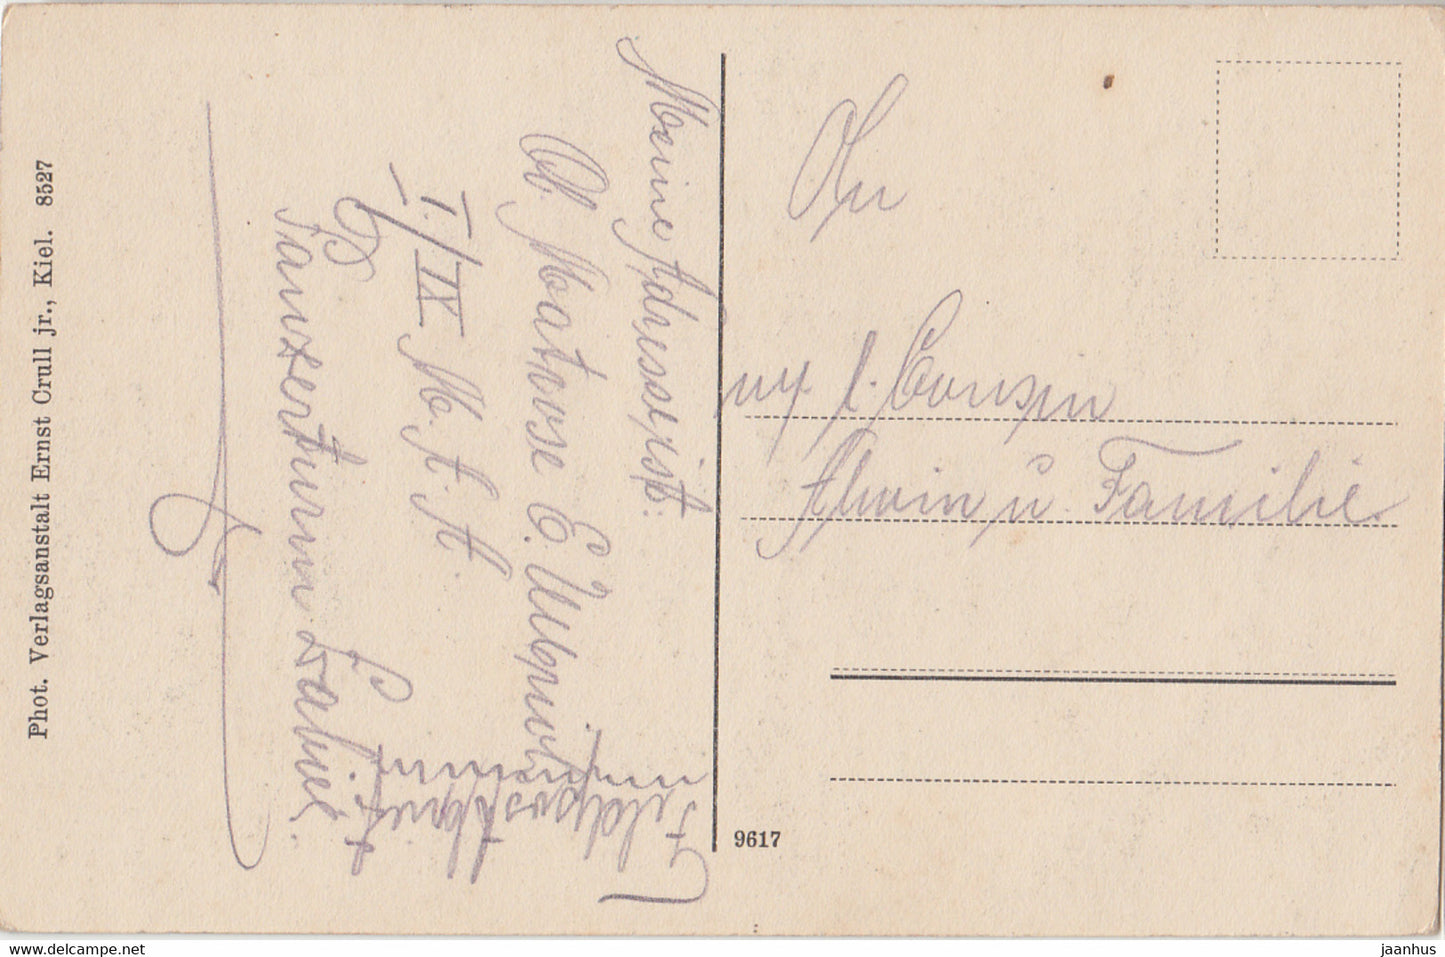 Meine Adresse ist:
Ob. Matrose E.
I./IX M. A. A.
Panzerturm
Feldpostbrief
An
Alwin u. Familie.
Phot. Verlagsanstalt Ernst Crull jr., Kiel. 8527
9617
www.delcampe.net
jaanhus